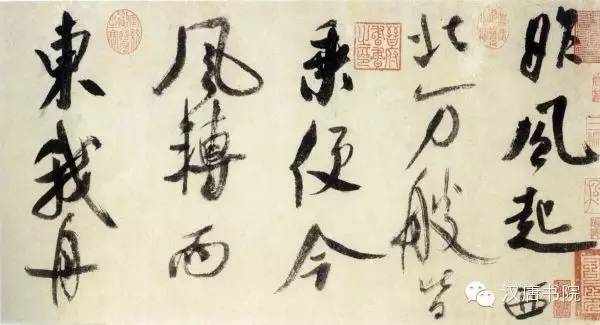 昨風起西
北万艘皆
乘便今
風轉而
東我舟
汉唐书院